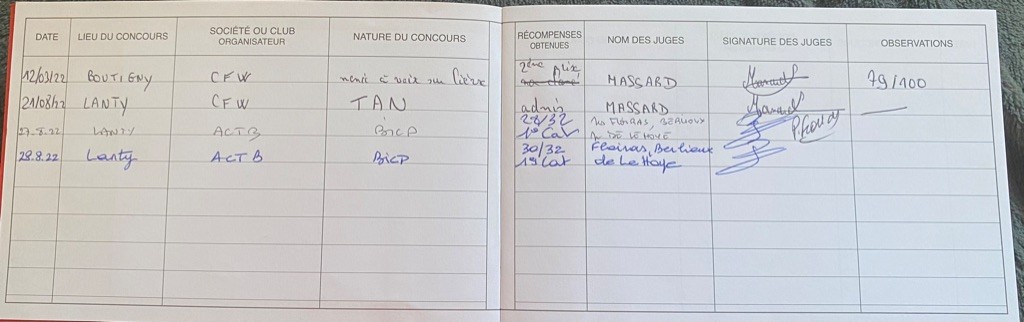 DATE LIEU DU CONCOURS SOCIÉTÉ OU CLUB ORGANISATEUR NATURE DU CONCOURS RÉCOMPENSES OBTENUES NOM DES JUGES SIGNATURE DES JUGES OBSERVATIONS
12/03/22 BOUTIGNY CFW menée à voix sur lièvre 2ème Prix MASSARD 79/100
21/08/22 LANTY CFW TAN admis MASSARD
27.8.22 LANTY ACTB BICP 28/32 FLOIRAS,
1° Cat DE LE HOYE
28.8.22 Lanty ACTB BICP 30/32 Floiras, Berlioux
1° Cat de Le Hoye